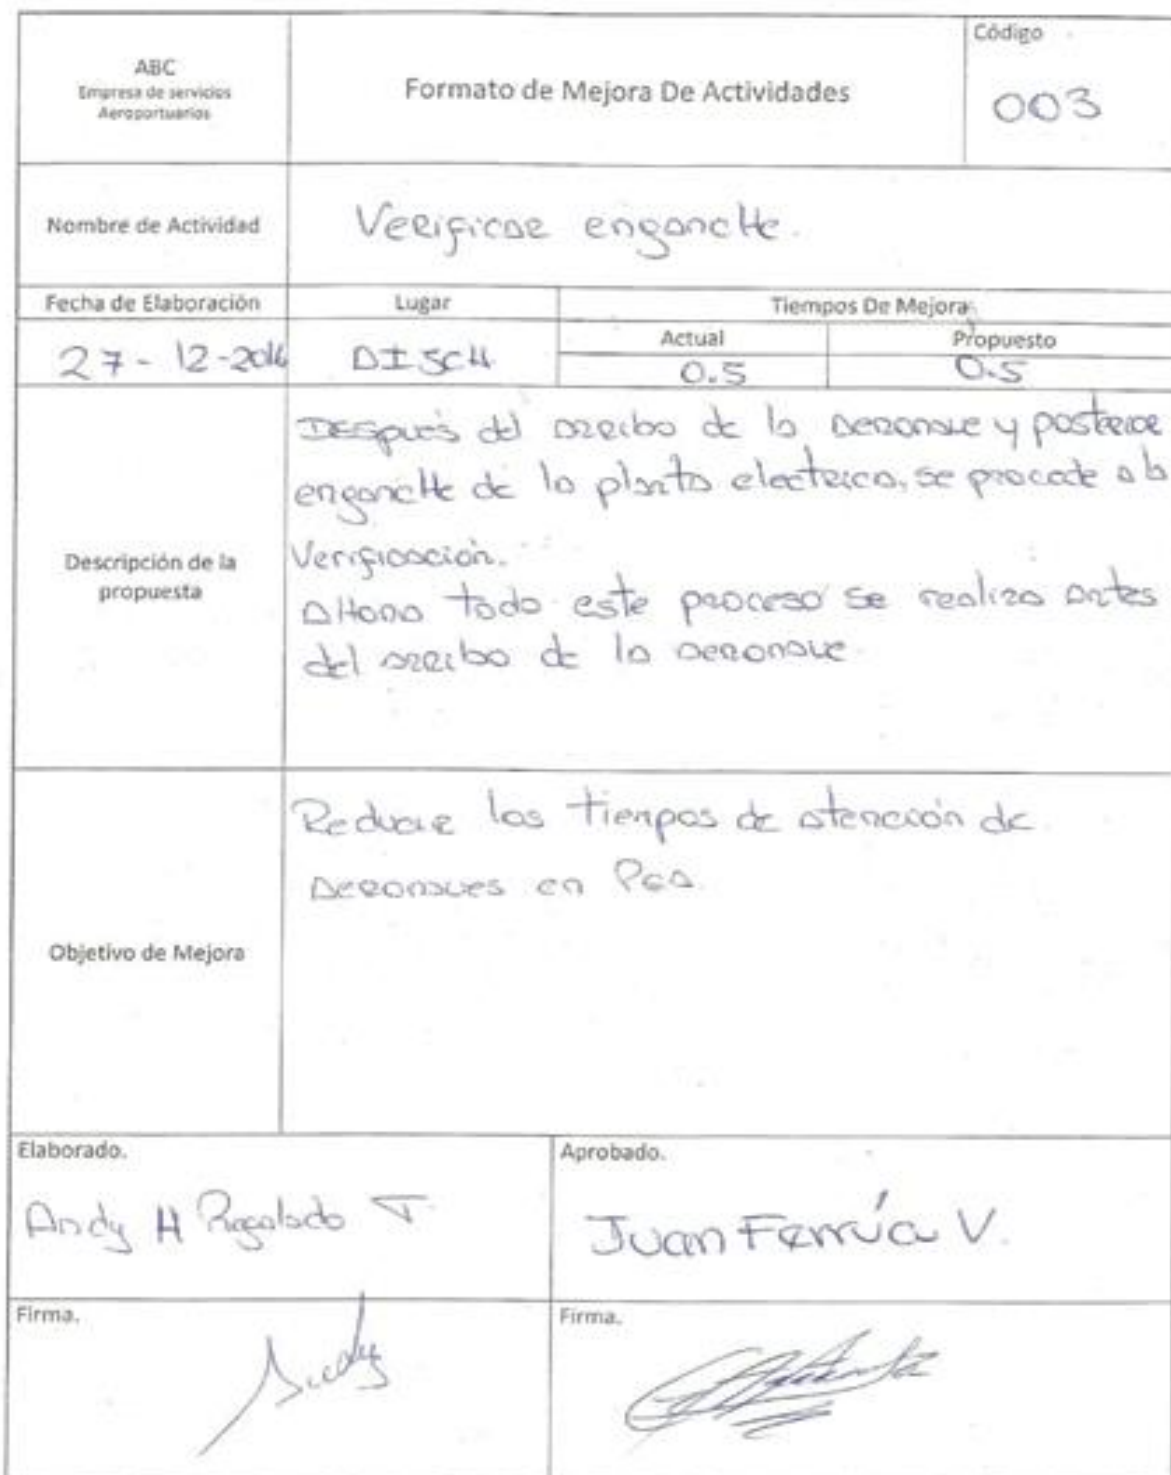 ABC
Empresa de servicios
Aeroportuarios
Formato de Mejora De Actividades
Código
003
Nombre de Actividad
Verificar enganche.
Fecha de Elaboración
Lugar
Tiempos De Mejora
Actual
Propuesto
27-12-2016
DISCH
0.5
0.5
Descripción de la
propuesta
Después del arribo de la aeronave y posterior
enganche de la planta electrica, se procede a la
Verificación.
Ahora todo este proceso se realiza antes
del arribo de la aeronave
Objetivo de Mejora
Reducir los tiempos de atención de
aeronaves en PEA
Elaborado.
Andy H Regalado T.
Aprobado.
Juan Ferrúa V.
Firma.
Andy
Firma.